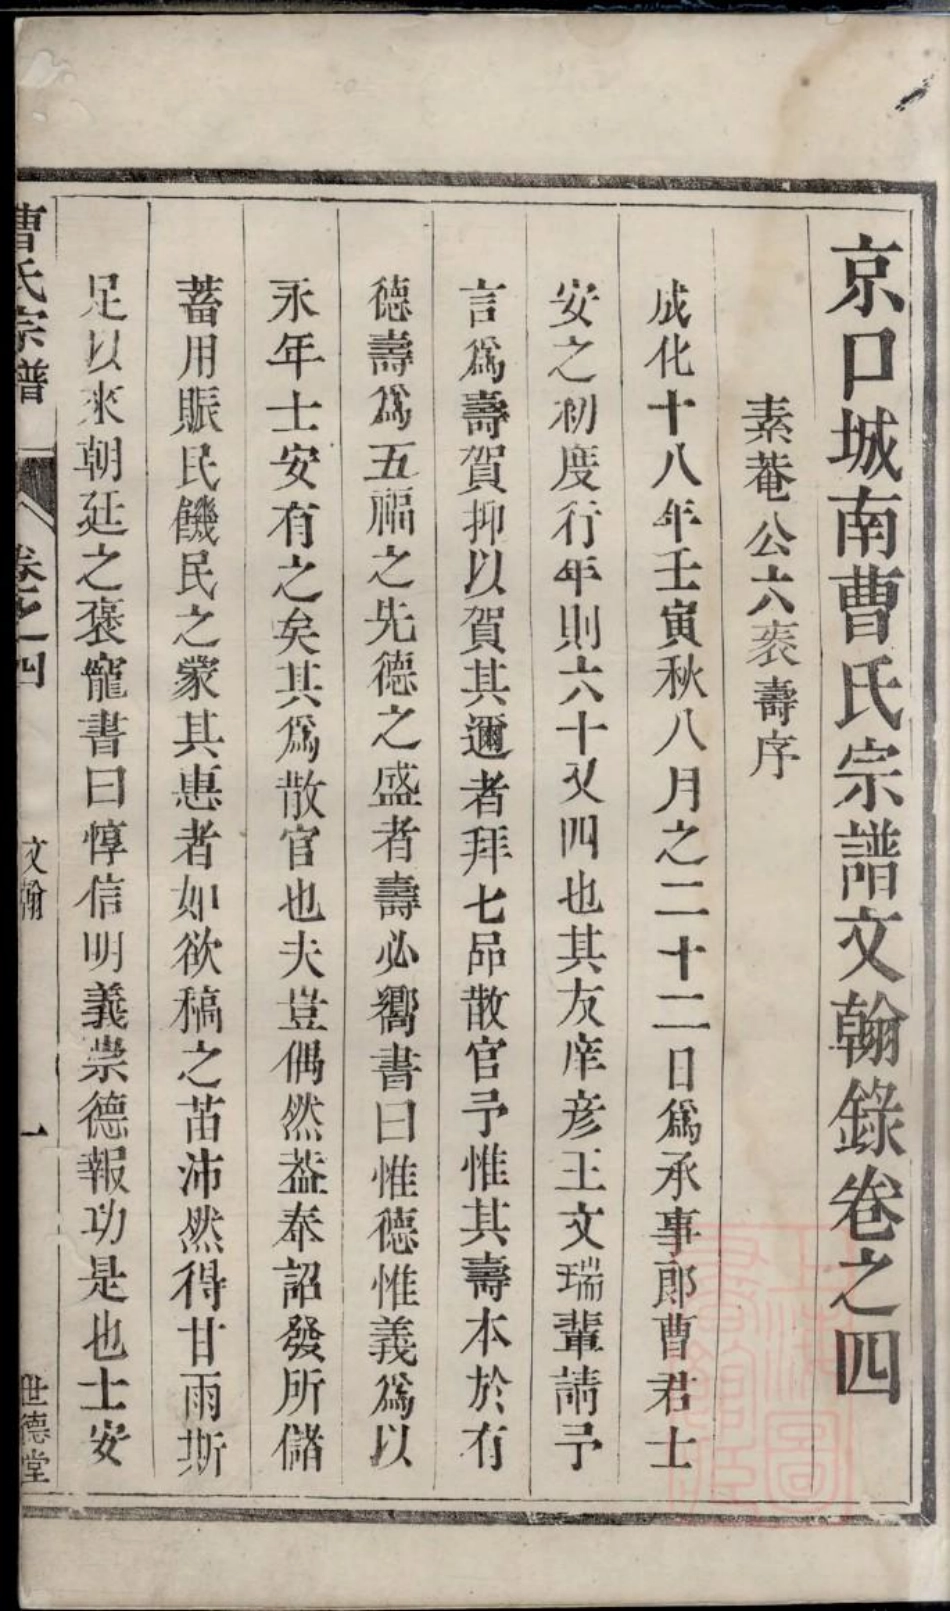 京口城南曹氏宗譜文翰錄卷之四
素菴公六袠壽序
成化十八年壬寅秋八月之二十二日爲承事郎曹君士
安之初度行年則六十又四也其友庠彦王文瑞輩請予
言爲壽賀抑以賀其邇者拜七品散官予惟其壽本於有
德壽爲五福之先德之盛者壽必嚮書曰惟德惟義爲以
永年士安有之矣其爲散官也夫豈偶然葢奉詔發所儲
蓄用賑民饑民之蒙其惠者如欲稿之苗沛然得甘雨斯
足以來朝廷之褒寵書曰惇信明義崇德報功是也士安
曹氏宗譜 卷之四 文翰 一 世德堂